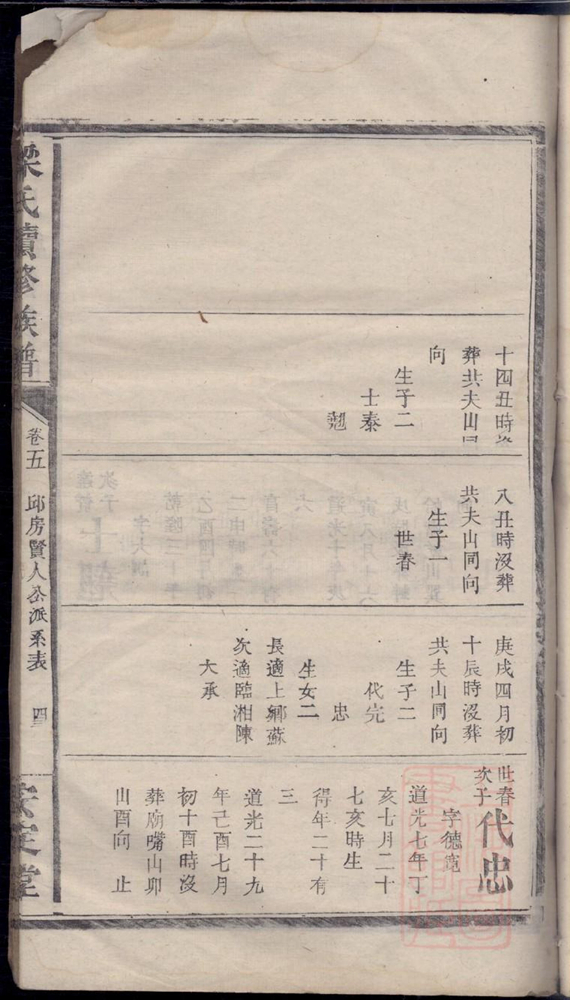 十四丑時
葬共夫山同
向
生子二
士泰
魁
八丑時沒葬
共夫山同向
生子一
世春
庚戌四月初
十辰時沒葬
共夫山同向
生子二
代完
忠
生女二
長適上鄉蘇
次適臨湘陳
大承
世春
次子
代忠
字德寬
道光七年丁
亥七月二十
七亥時生
得年二十有
三
道光二十九
年己酉七月
初十酉時沒
葬廟嘴山卯
山酉向 止
梁氏續修族譜
卷五 邱房賢人公派系表 四
安定堂